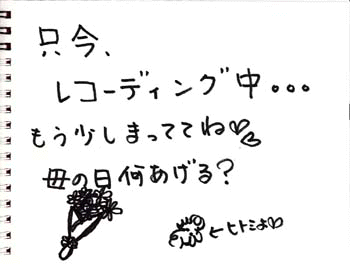 只今、
レコーディング中...
もう少しまっててね♡♡
母の日何あげる?
←ヒトミよ♡